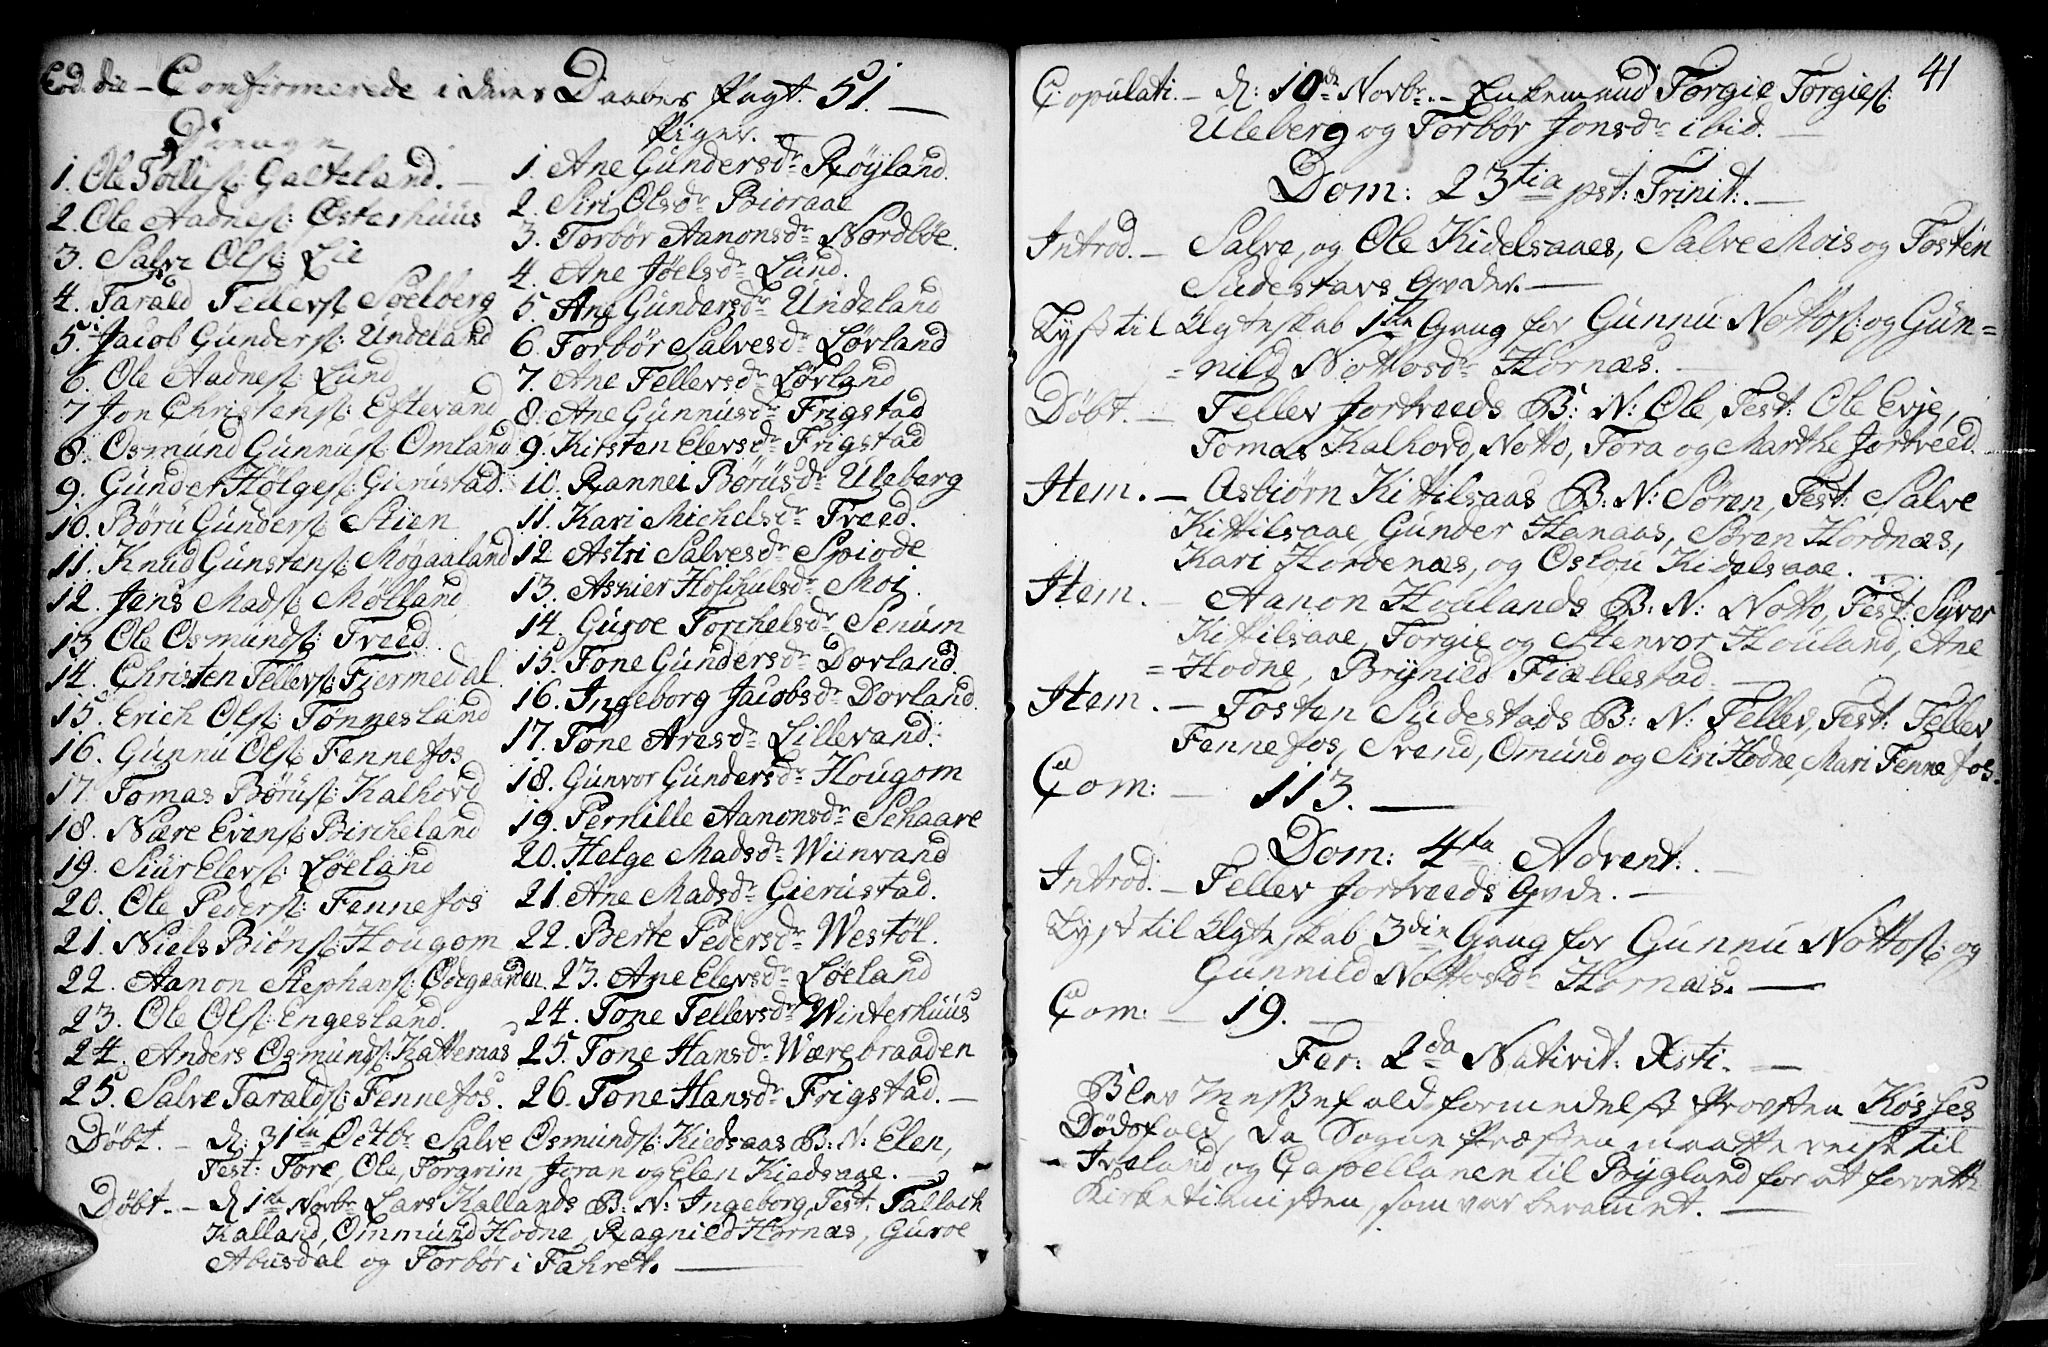 Eod: die – Confirmerede i deres Daabes Pagt. 51. –
Drenge
1. Ole Tollefs: Galteland. –
2. Ole Aadnes: Østerhuus
3. Salve Ols: Lie
4. Tarald Tellefs: Søelberg
5. Jacob Gunders: Undeland
6. Ole Aadnes: Lund
7 Jon Christens: Eftevand
8. Osmund Gunnus: Omland
9. Gunder Hølges: Gierustad.
10. Børu Gunders: Stien
11. Knud Gunstens: Møgaaland
12. Jens Mads: Mølland
13 Ole Osmunds: Treed.
14. Christen Tellefs: Fjermedal.
15. Erich Ols: Tønnesland
16. Gunnu Ols: Fennefos
17. Tomas Børus: Kalhovd
18. Nære Evens: Bircheland
19. Siur Elefs: Løeland
20. Ole Peders: Fennefos
21. Niels Biøns: Hougom
22. Aanon Stephans: Ødegaarden
23. Ole Ols: Engesland.
24. Anders Osmunds: Katteraas
25. Salve Taralds: Fennefos.
Piger. –
1. Ane Gundersdr Røyland.
2. Siri Olsdr Bioraae
3. Torbør Aanonsdr Nordbøe.
4. Ane Jøelsdr Lund.
5. Ane Gundersdr Undeland
6. Torbør Salvesdr Løvland
7. Ane Tellevsdr Løvland
8. Ane Gunnusdr Frigstad
9. Kirsten Elevsdr Frigstad
10. Rannei Børusdr Uleberg
11. Kari Michelsdr Treed.
12 Astri Salvesdr Spiode
13. Asnier Hoschulsdr Moi.
14. Guroe Torchelsdr Senum
15. Tone Gundersdr Dovland.
16. Ingeborg Jacobsdr Dovland.
17. Tone Aresdr Lillevand.
18. Gunvor Gundersdr Hougom
19. Pernille Aanonsdr Schaare
20. Helge Madsdr Wiinvand
21. Ane Madsdr Gierustad.
22. Berte Pedersdr Westøl.
23. Ane Elevsdr Løeland
24. Tone Tellevsdr Winterhuus
25. Tone Hansdr Wærebraaden
26. Tone Hansdr Frigstad. –
Døbt. – d: 31te Octbr. Salve Osmunds: Kiedsaas B: N: Elen,
Test: Tore, Ole, Torgrim, Joran og Elen Kiedsaae.
Døbt. – d 1te Novbr Lars Kallands B: N: Ingeborg, Test: Tallack
Kalland, Ommund Hodne, Ragnild Hornæs, Guroe
Abusdal og Torbør i Fahret. –
41
Copulati. – d: 10de Novbr. – Enkemand Torgie Torgies:
Uleberg og Torbør Jonsdr ibid. –
Dom: 23tia pst: Trinit: –
Introd. – Salve, og Ole Kidelsaaes, Salve Mois og Tosten
Sudestads Qvder. –
Lyst til Ægteskab 1te Gang for Gunnu Nottos: og Gun=
=nild Nottosdr Hornæs. –
Døbt. – Tellev Jortveeds B: N: Ole, Test: Ole Evje,
Tomas Kalhovd, Notto, Tora og Marthe Jortveed.
Item. – Asbiørn Kittilsaas B: N: Søren, Test: Salve
Kittilsaae, Gunder Hanaas, Søren Hordnæs,
Kari Hordenæs, og Oslou Kidelsaae. –
Item. – Aanon Houlands B: N: Notto, Test: Syver
Kittilsaae, Torgie og Stenvor Houland, Ane
=Hodne, Brynild Fiællestad. –
Item. – Tosten Sudestads B: N: Tellev, Test: Tellev
Fennefos, Svend, Omund og Siri Hodne, Mari Fennefos.
Com: – 113. –
Dom: 4ta Advent:. –
Introd. – Tellev Jortveeds Qvde. –
Lyst til Ægteskab 3die Gang for Gunnu Nottos: og
Gunnild Nottosdr Hornæs. –
Com: – 19. –
Fer: 2da Nativit: Xsti. –
Blev Messefald formedelst Provsten Køsses
Dødsfald, da Sogne Præsten maatte reise til
Iveland og Capellanen til Bygland for at forrette
Kirketienisten, som var beramet. –